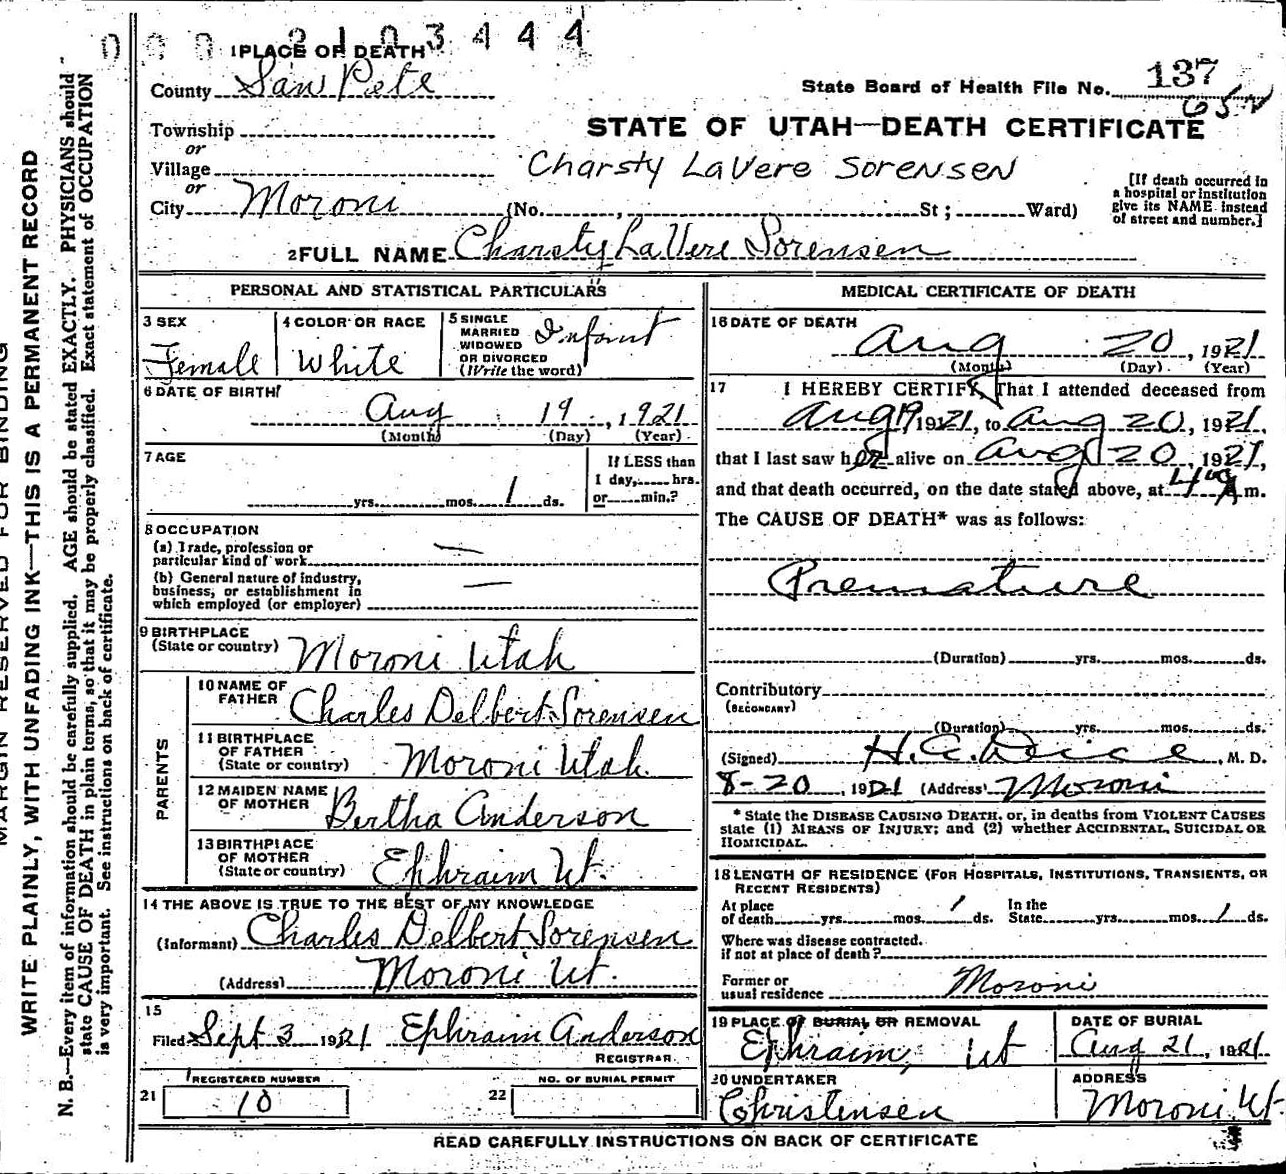 0002103444
1 PLACE OF DEATH
County San Pete
State Board of Health File No. 137
65
Township
STATE OF UTAH—DEATH CERTIFICATE
or
Village
Charsty LaVere Sorensen
or
City Moroni (No. , St ; Ward)
[If death occurred in
a hospital or institution
give its NAME instead
of street and number.]
2 FULL NAME Charsty LaVere Sorensen
PERSONAL AND STATISTICAL PARTICULARS
3 SEX
Female
4 COLOR OR RACE
White
5 SINGLE
MARRIED
WIDOWED
OR DIVORCED
(Write the word)
Infant
6 DATE OF BIRTH
Aug 19, 1921
(Month) (Day) (Year)
7 AGE
yrs. mos. 1 ds.
If LESS than
1 day, hrs.
or min.?
8 OCCUPATION
(a) Trade, profession or
particular kind of work —
(b) General nature of industry,
business, or establishment in
which employed (or employer) —
9 BIRTHPLACE
(State or country) Moroni Utah
PARENTS
10 NAME OF
FATHER Charles Delbert Sorensen
11 BIRTHPLACE
OF FATHER
(State or country) Moroni Utah
12 MAIDEN NAME
OF MOTHER Bertha Anderson
13 BIRTHPLACE
OF MOTHER
(State or country) Ephraim Ut.
14 THE ABOVE IS TRUE TO THE BEST OF MY KNOWLEDGE
(Informant) Charles Delbert Sorensen
(Address) Moroni Ut.
15
Filed Sept 3 1921 Ephraim Anderson
REGISTRAR
REGISTERED NUMBER
21 10
NO. OF BURIAL PERMIT
22
MEDICAL CERTIFICATE OF DEATH
16 DATE OF DEATH
Aug 20, 1921
(Month) (Day) (Year)
17 I HEREBY CERTIFY, That I attended deceased from
Aug 19, 1921, to Aug 20, 1921,
that I last saw her alive on Aug 20 1921,
and that death occurred, on the date stated above, at 4 00 A m.
The CAUSE OF DEATH* was as follows:
Premature
(Duration) yrs. mos. ds.
Contributory
(SECONDARY)
(Duration) yrs. mos. ds.
(Signed) H. C. , M. D.
8-20, 1921 (Address) Moroni
* State the DISEASE CAUSING DEATH, or, in deaths from VIOLENT CAUSES
state (1) MEANS OF INJURY; and (2) whether ACCIDENTAL, SUICIDAL OR
HOMICIDAL.
18 LENGTH OF RESIDENCE (FOR HOSPITALS, INSTITUTIONS, TRANSIENTS, OR
RECENT RESIDENTS)
At place
of death yrs. mos. 1 ds.
In the
State yrs. mos. 1 ds.
Where was disease contracted,
if not at place of death?
Former or
usual residence Moroni
19 PLACE OF BURIAL OR REMOVAL
Ephraim, Ut
DATE OF BURIAL
Aug 21, 1921
20 UNDERTAKER
Christensen
ADDRESS
Moroni, Ut.
READ CAREFULLY INSTRUCTIONS ON BACK OF CERTIFICATE
MARGIN RESERVED FOR BINDING
WRITE PLAINLY, WITH UNFADING INK—THIS IS A PERMANENT RECORD
N. B.—Every item of information should be carefully supplied. AGE should be stated EXACTLY. PHYSICIANS should
state CAUSE OF DEATH in plain terms, so that it may be properly classified. Exact statement of OCCUPATION
is very important. See instructions on back of certificate.